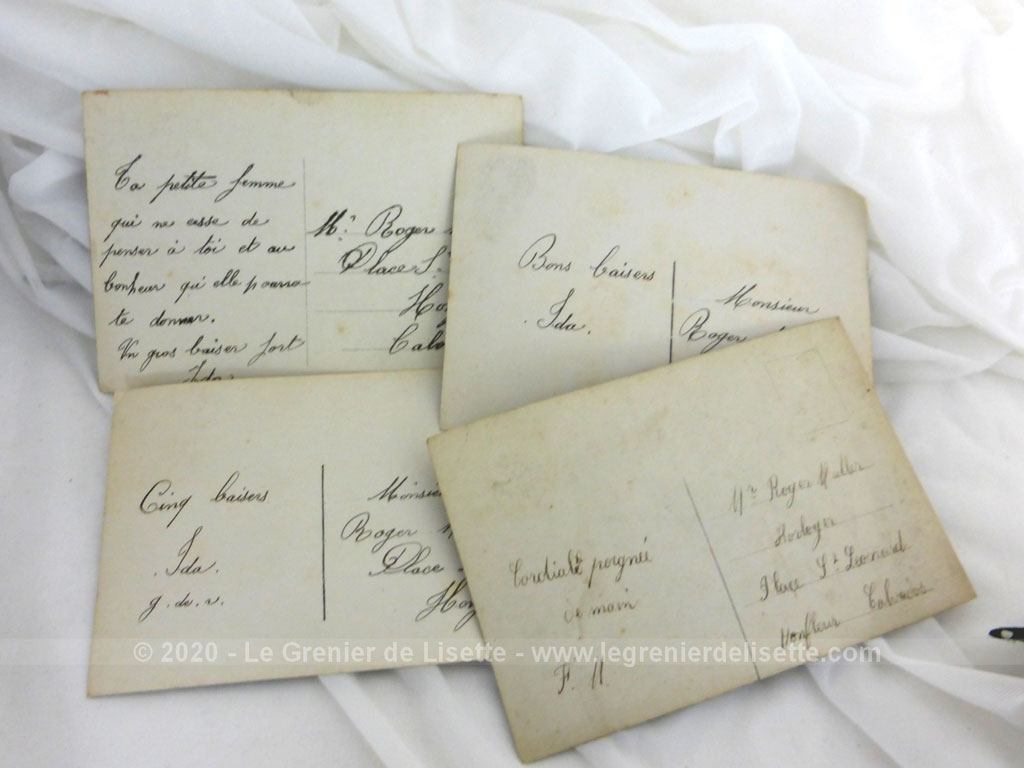 Ta petite femme
qui ne cesse de
penser à toi et au
bonheur qu'elle pourra
te donner.
Un gros baiser fort
Ida
Mr Roger
Place St
Hon
Calv
Bons baisers
Ida.
Monsieur
Roger
Cinq baisers
Ida.
g. de. v.
Monsie
Roger
Place
Hon
Cordiale poignée
de main
F. M.
Mr Roger Muller
Horloger
Place St Leonard
Honfleur Calvados
© 2020 - Le Grenier de Lisette - www.legrenierdelisette.com